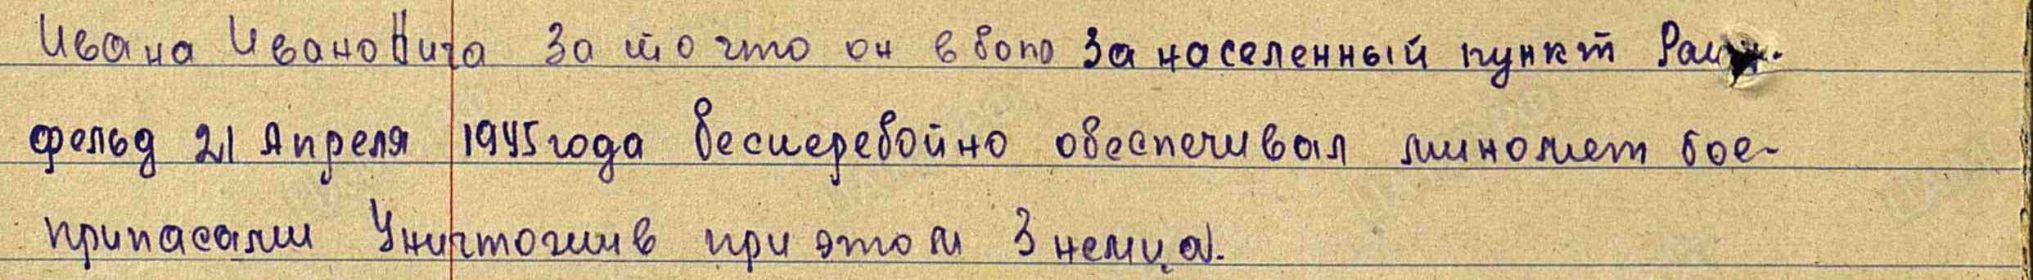 Ивана Ивановича за то что он в бою за населенный пункт
фельд 21 Апреля 1945 года бесперебойно обеспечивал миномет бое-
припасами Уничтожив при этом 3 немца.